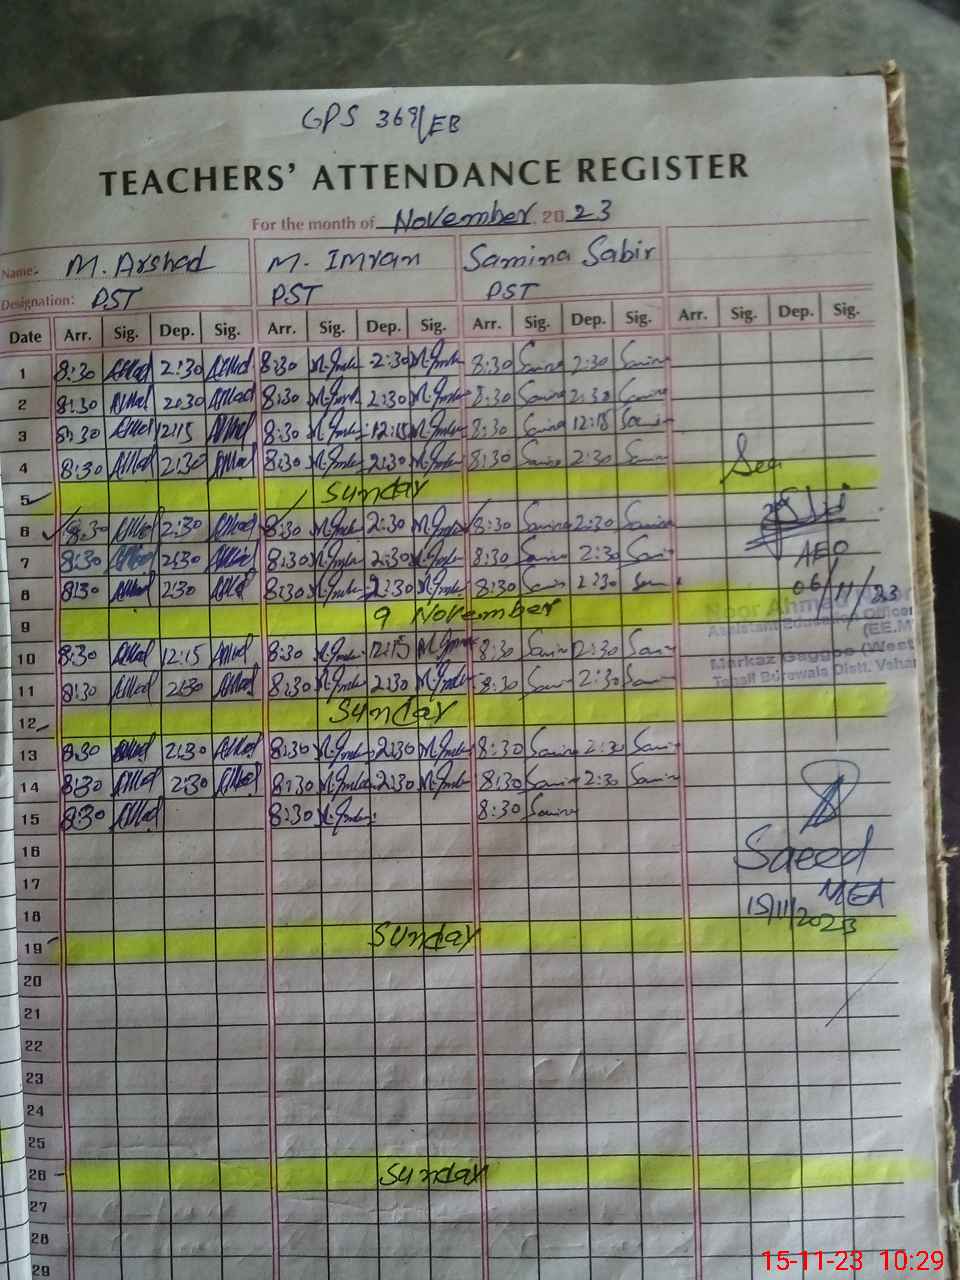 GPS 369/EB
TEACHERS' ATTENDANCE REGISTER
For the month of November, 2023
Name: M. Arshad M. Imran Samina Sabir
Designation: PST PST PST
Date Arr. Sig. Dep. Sig. Arr. Sig. Dep. Sig. Arr. Sig. Dep. Sig. Arr. Sig. Dep. Sig.
1 8:30 2:30 8:30 M.Imran 2:30 M.Imran 8:30 Samina 2:30 Samina
2 8:30 2:30 8:30 M.Imran 2:30 M.Imran 8:30 Samina 2:30 Samina
3 8:30 12:15 8:30 M.Imran 12:15 M.Imran 8:30 Samina 12:15 Samina
4 8:30 2:30 8:30 M.Imran 2:30 M.Imran 8:30 Samina 2:30 Samina
5 Sunday
6 8:30 2:30 8:30 M.Imran 2:30 M.Imran 8:30 Samina 2:30 Samina
7 8:30 2:30 8:30 M.Imran 2:30 M.Imran 8:30 Samina 2:30 Samina
AEO
8 8:30 2:30 8:30 M.Imran 2:30 M.Imran 8:30 Samina 2:30 Samina
06/11/23
9 9 November
Noor Ahmed
Assistant Education Officer
(EE.M
10 8:30 12:15 8:30 M.Imran 12:15 M.Imran 8:30 Samina 12:30 Samina
Markaz Gaggoo (West
Tehsil Burewala Distt. Vehar
11 8:30 2:30 8:30 M.Imran 2:30 M.Imran 8:30 Samina 2:30 Samina
12 Sunday
13 8:30 2:30 8:30 M.Imran 2:30 M.Imran 8:30 Samina 2:30 Samina
14 8:30 2:30 8:30 M.Imran 2:30 M.Imran 8:30 Samina 2:30 Samina
15 8:30 8:30 M.Imran 8:30 Samina
16 Saeed
17 MEA
18 15/11/2023
19 Sunday
20
21
22
23
24
25
26 Sunday
27
28
29
15-11-23 10:29